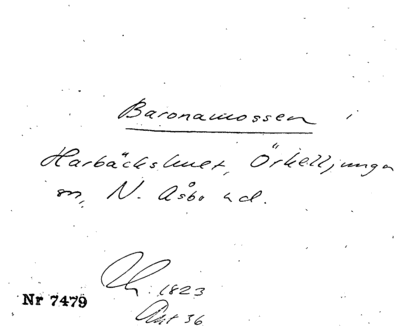 Baronamossen i
Harbäckshult, Örkelljunga
sn, N. Åsbo hd.
1823
Nr 7479
Akt 36